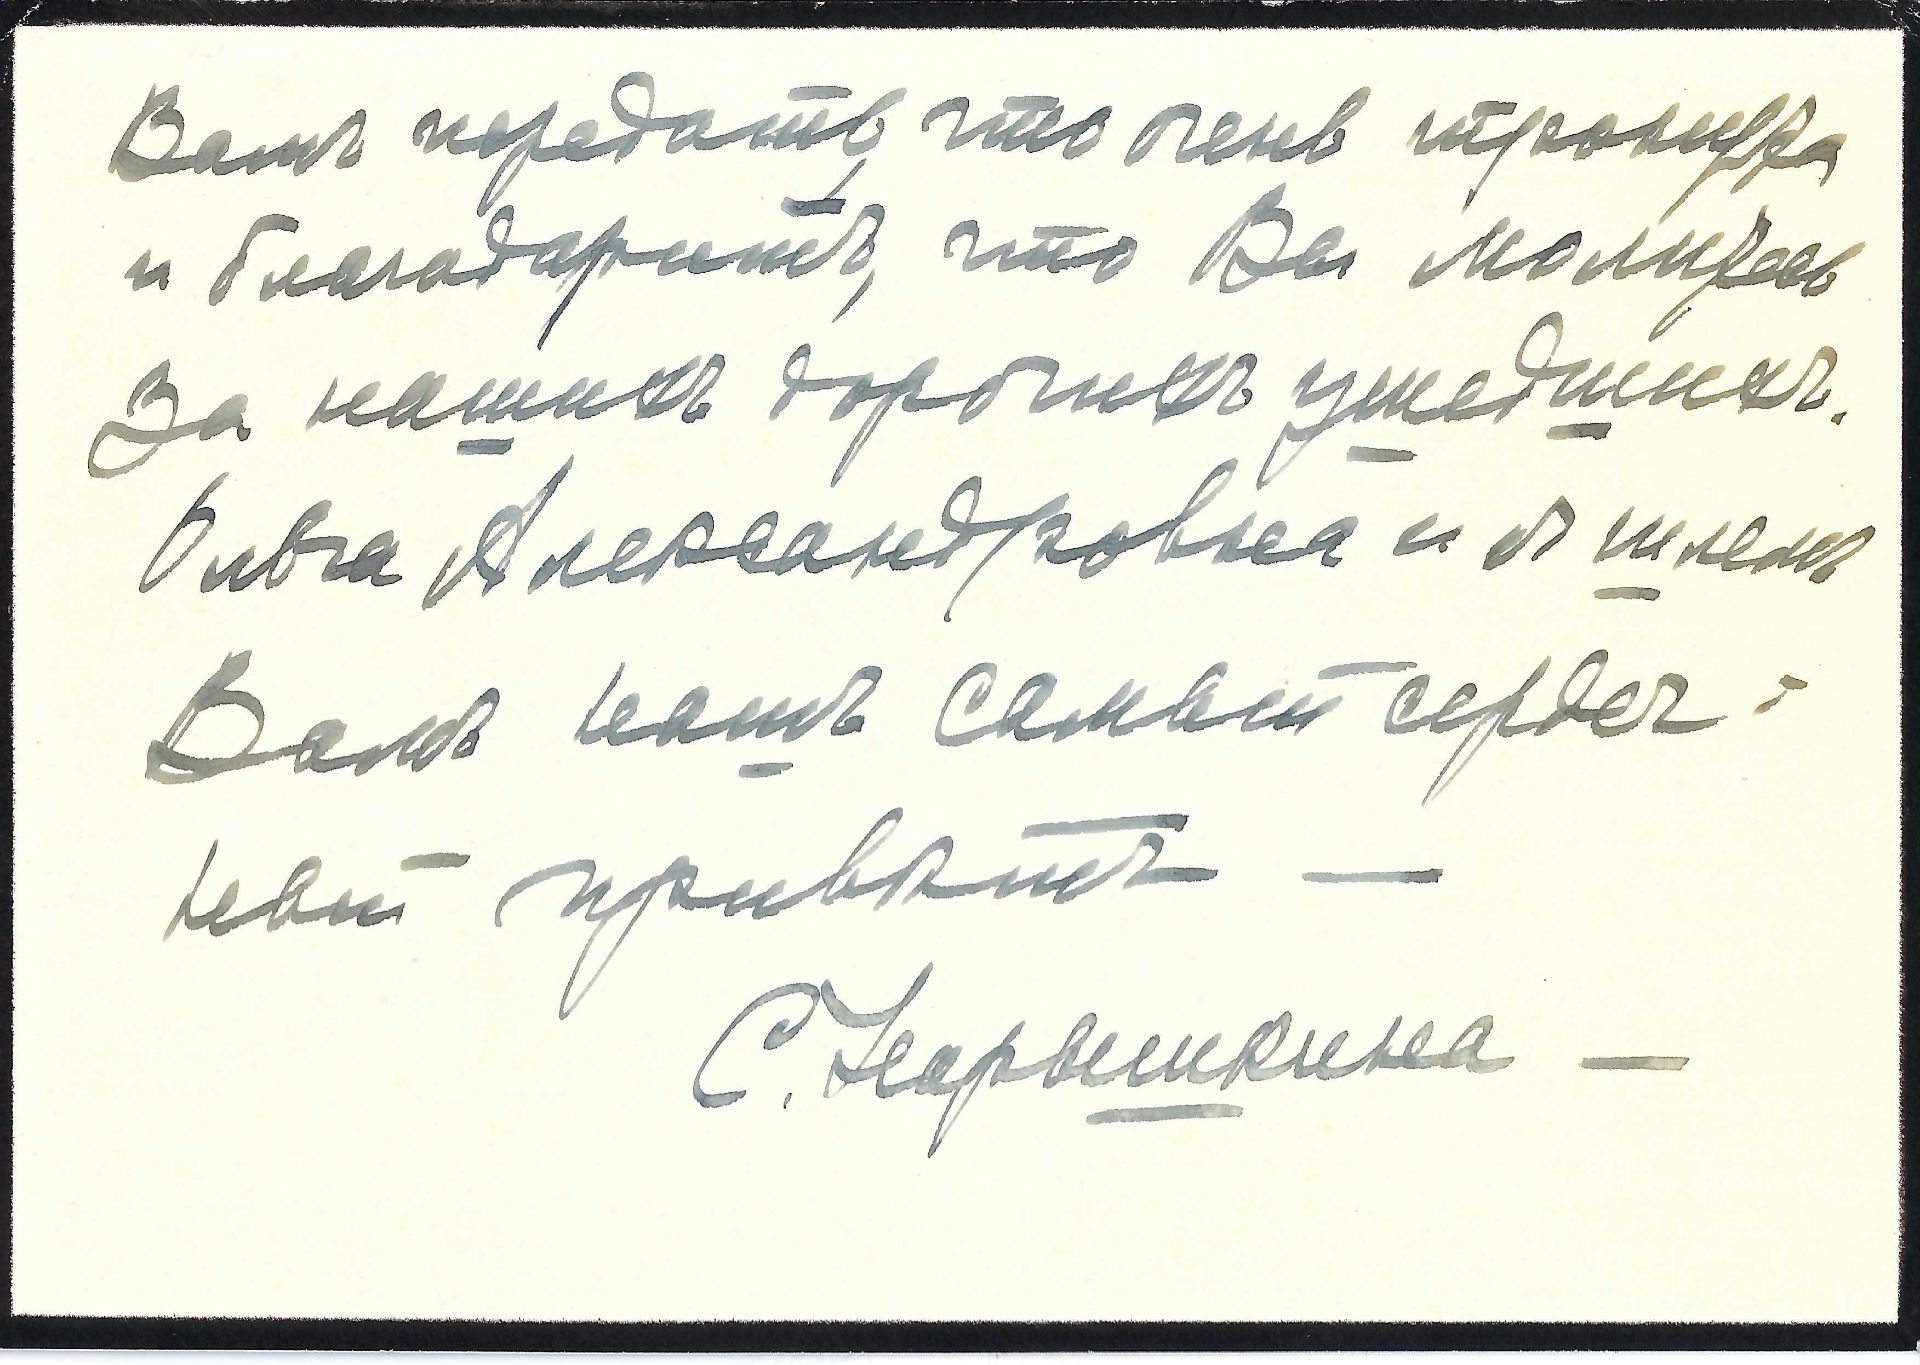 Вамъ передать, что очень тронута
и благодаритъ, что Вы молитесь
за нашихъ дорогихъ ушедшихъ.
Ольга Александровна и я шлемъ
Вамъ нашъ самый сердеч-
ный привѣтъ —
С. Нарышкина —